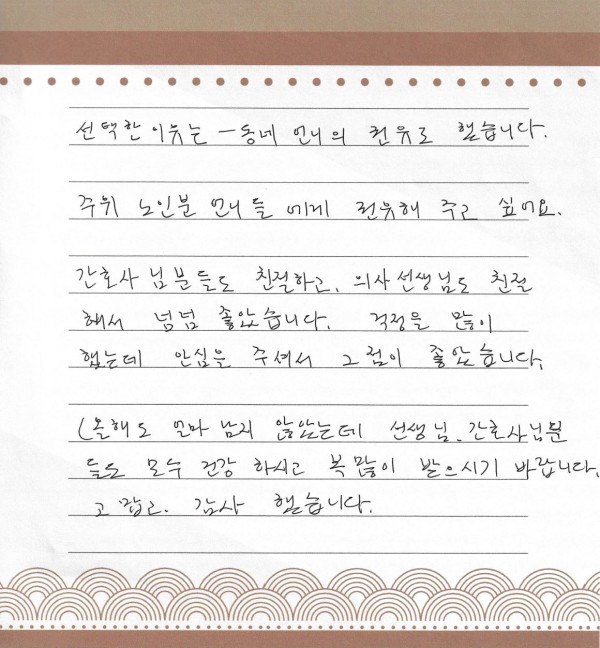 선택한 이유는 - 동네 언니의 권유로 했습니다.
주위 노인분 언니들에게 권유해 주고 싶어요.
간호사 님분들도 친절하고, 의사선생님도 친절
해서 넘넘 좋았습니다. 걱정을 많이
했는데 안심을 주셔서 그점이 좋았습니다.
(올해도 얼마 남지 않았는데 선생님. 간호사님분
들도 모두 건강 하시고 복많이 받으시기 바랍니다.
고맙고. 감사 했습니다.